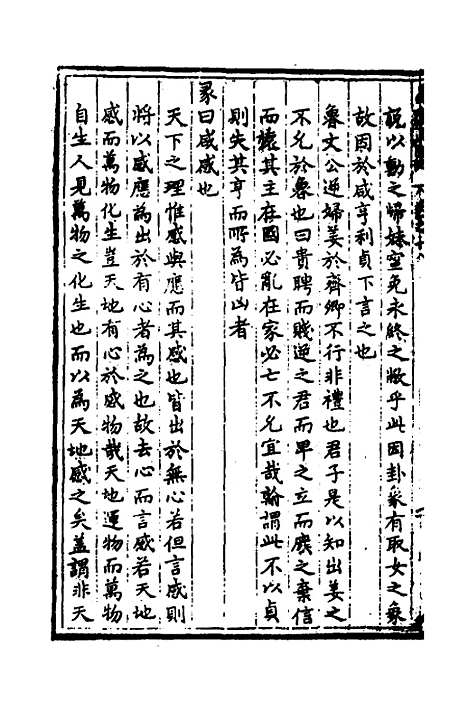 說以動之歸妹宜免永終之敝乎此因卦象有取女之象
故因於咸亨利貞下言之也
魯文公逆婦姜於齊卿不行非禮也君子是以知出姜之
不允於魯也曰貴聘而賤逆之君而卑之立而廢之棄信
而壞其主在國必亂在家必亡不允宜哉翰謂此不以貞
則失其亨而所為皆凶者
彖曰咸感也
天下之理惟感與應而其感也皆出於無心若但言感則
將以感應為出於有心者為之也故去心而言咸若天地
感而萬物化生豈天地有心於感物哉天地運物而萬物
自生人見萬物之化生也而以為天地感之矣蓋謂非天